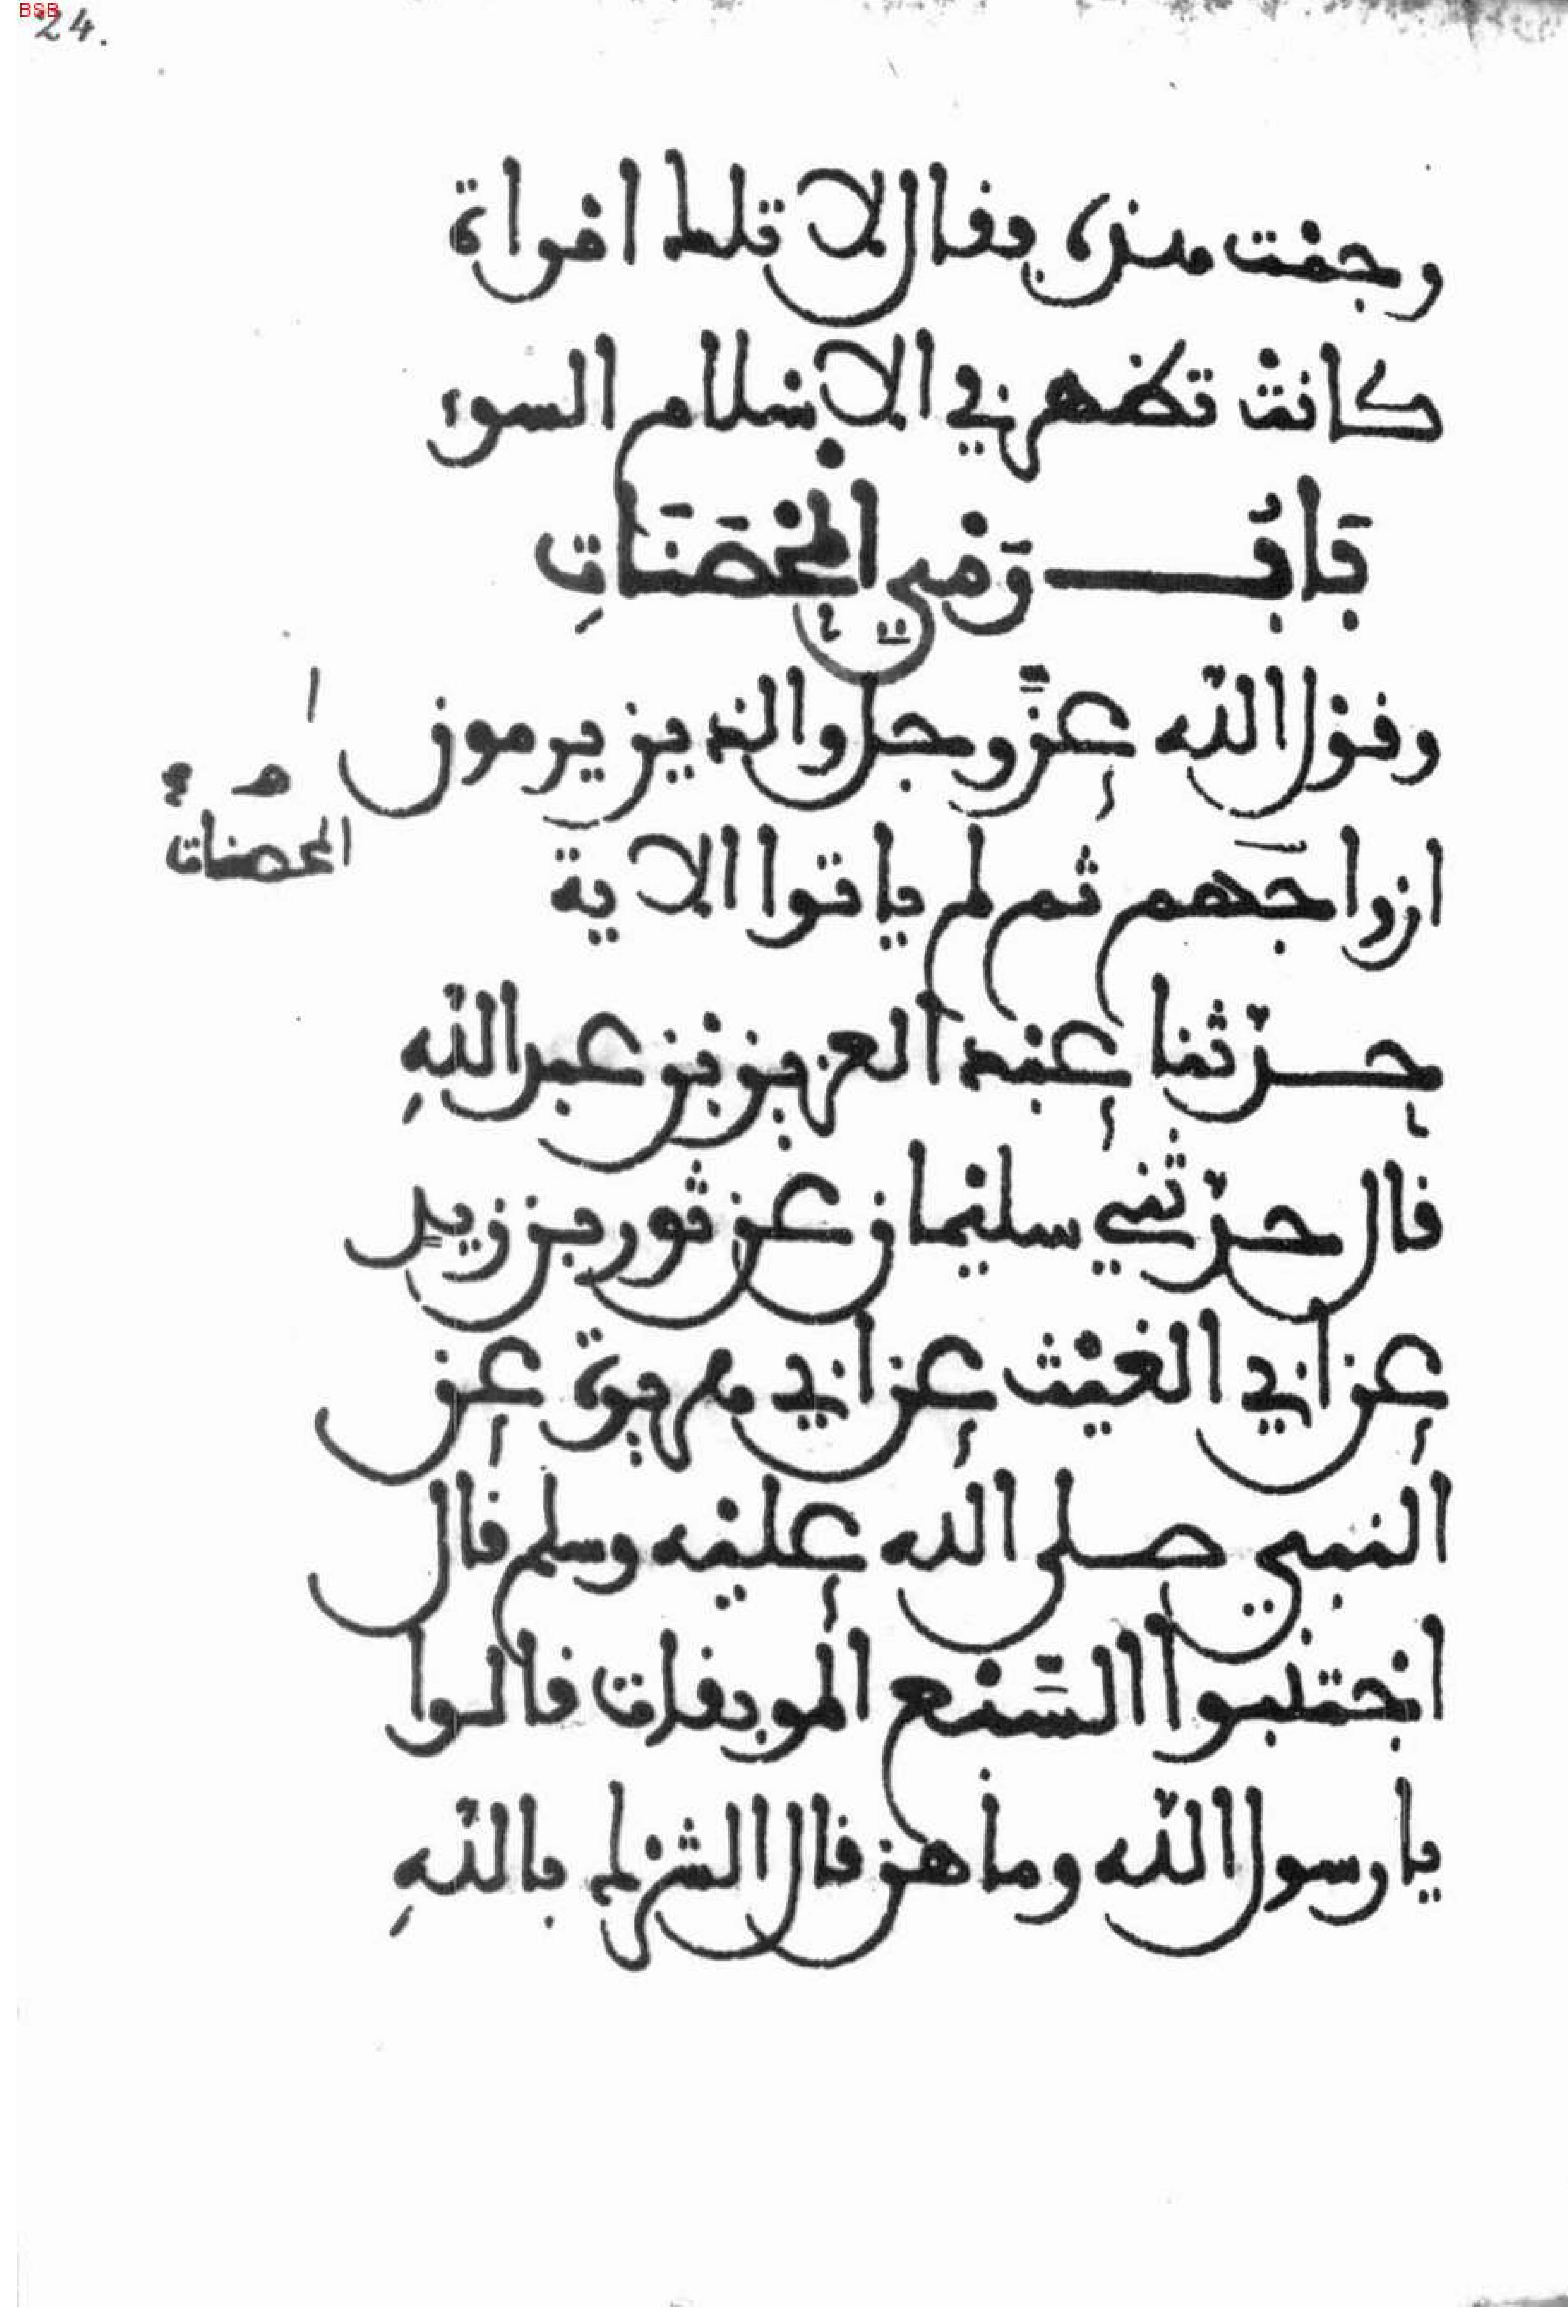 24.
BSB
رجمت هذه فقال لا تلك امراة
كانت تظهر في الاسلام السوء
بَابُ رَمْيِ الْمُحْصَنَاتِ
وقول الله عزَّ وجل والذين يرمون
ازواجَهم ثم لم ياتوا الاية
المحصنات
حدثنا عبد العزيز بن عبد اللهِ
قال حدثني سليمان عن ثور بن زيد
عن ابي الغيث عن ابي هريرة عن
النبي صلى الله عليه وسلم قال
اجتنبوا السَّبع الموبقات قالوا
يا رسول الله وما هن قال الشرك باللهِ